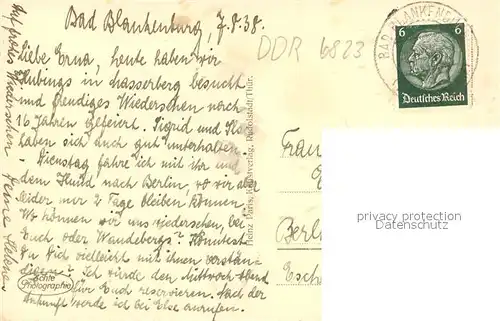 Bad Blankenburg, 7.8.38.
DDR 6823
BAD BLANKENBURG
6 6
Deutsches Reich
Liebe Erna, heute haben wir
Hubings in Wasserberg besucht
und freudiges Wiedersehen nach
16 Jahren gefeiert. Sigrid und
haben sich auch gut unterhalten.
Dienstag fahre ich mit ihr und
dem Kind nach Berlin, wo wir aber
leider nur 2 Tage bleiben können.
Wo können wir uns wiedersehen, bei
Euch oder Wandebergs? Könntest
Du Dich vielleicht mit ihnen verstän-
digen? Ich würde den Mittwoch abend
für Euch reservieren. Nach der
Ankunft werde ich bei Else anrufen.
Auf frohes Wiedersehen Deine Helene
Echte Photographie
Heinz Paris, Rudolstadt/Thür.
Frau
Berlin
privacy protection
Datenschutz